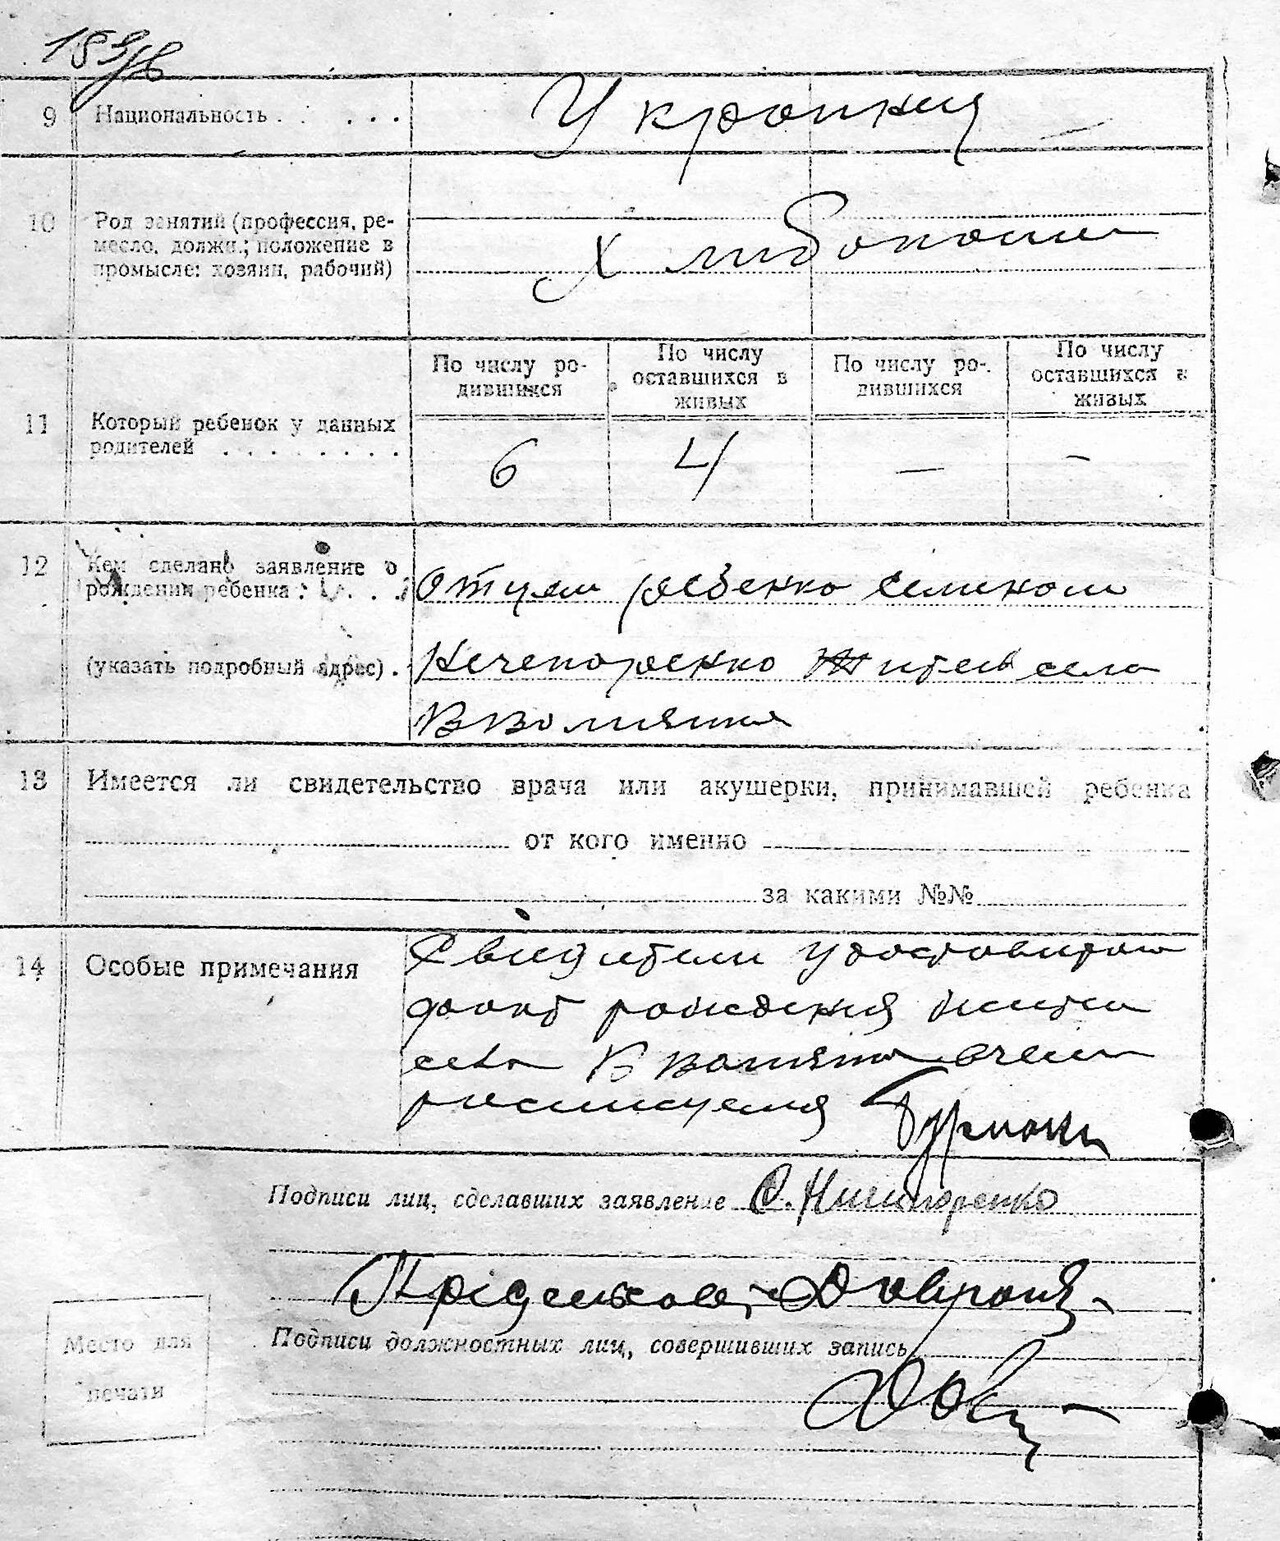 9 Национальность . . . . . Украинця
10 Род занятий (профессия, ре-
месло, должн.; положение в
промысле: хозяин, рабочий)
Хлибопаши
По числу ро-
дившихся
По числу
оставшихся в
живых
По числу ро-
дившихся
По числу
оставшихся в
живых
11 Который ребенок у данных
родителей . . . . . . . .
6 4 — -
12 Кем сделано заявление о
рождении ребенка:
(указать подробный адрес) .
Отцем ребенка Семеном
Нечепоренко Жител села
13 Имеется ли свидетельство врача или акушерки, принимавшей ребенка
от кого именно
за какими №№
14 Особые примечания
Свидители
факт рождения жители
села
росписуемся
Подписи лиц, сделавших заявление С. Ничипоренко
Подписи должностных лиц, совершивших запись
Место для
печати